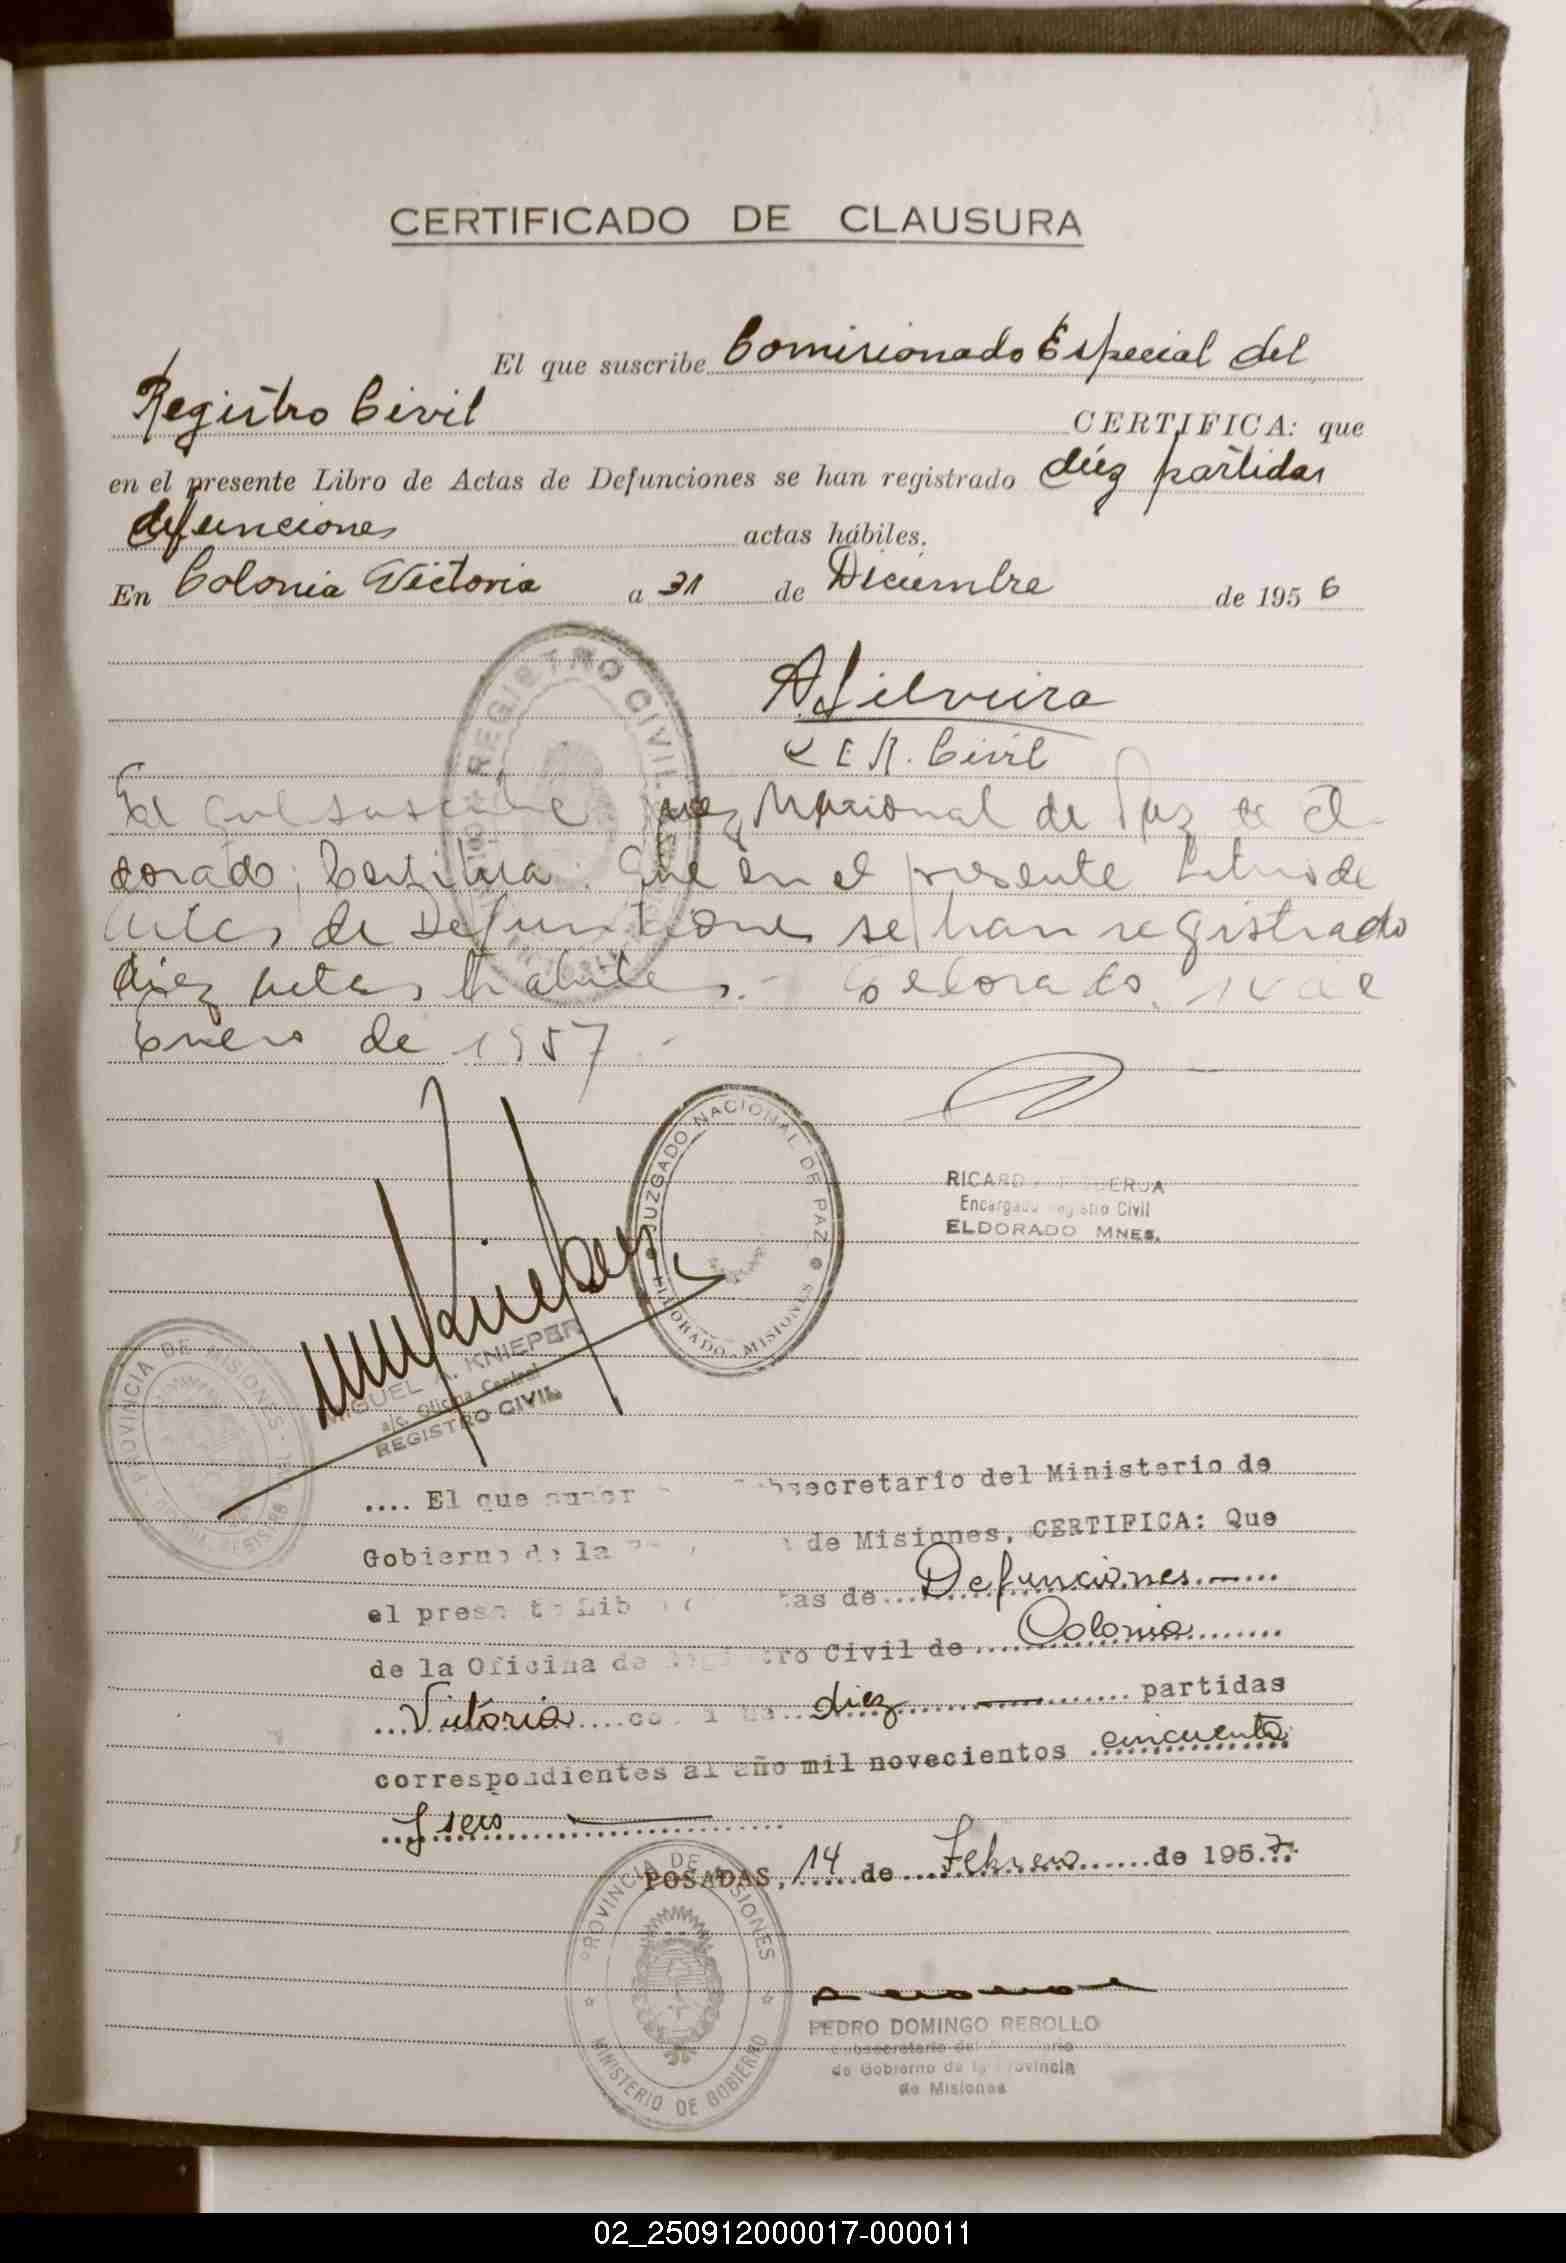 CERTIFICADO DE CLAUSURA
El que suscribe Comisionado Especial del
Registro Civil CERTIFICA: que
en el presente Libro de Actas de Defunciones se han registrado diéz partidas
defunciones actas hábiles.
En Colonia Victoria a 31 de Diciembre de 1956
A. Silveira
R. Civil
El que suscribe Juez Nacional de Paz de El
dorado; Certifica: Que en el presente Libro de
Actas de Defunciones se han registrado
diez actas habiles.- Eldorado, 14 de
Enero de 1957.-
REGISTRO CIVIL
JUZGADO NACIONAL DE PAZ
ELDORADO - MISIONES
RICARD
Encargado Registro Civil
ELDORADO MNES.
MIGUEL A. KNIEPER
a/c. Oficina Central
REGISTRO CIVIL
PROVINCIA DE MISIONES
.... El que suscr Subsecretario del Ministerio de
Gobierno de la de Misiones, CERTIFICA: Que
el presente Lib tas de... Defunciones.—...
de la Oficina de Registro Civil de ..... Colonia .......
... Victoria .... diez ..... — ...... partidas
correspondientes al año mil novecientos cincuenta
y seis
POSADAS, 14 de Febrero de 1957.
PROVINCIA DE MISIONES
MINISTERIO DE GOBIERNO
PEDRO DOMINGO REBOLLO
Subsecretario del Ministerio
de Gobierno de la Provincia
de Misiones
02_250912000017-000011